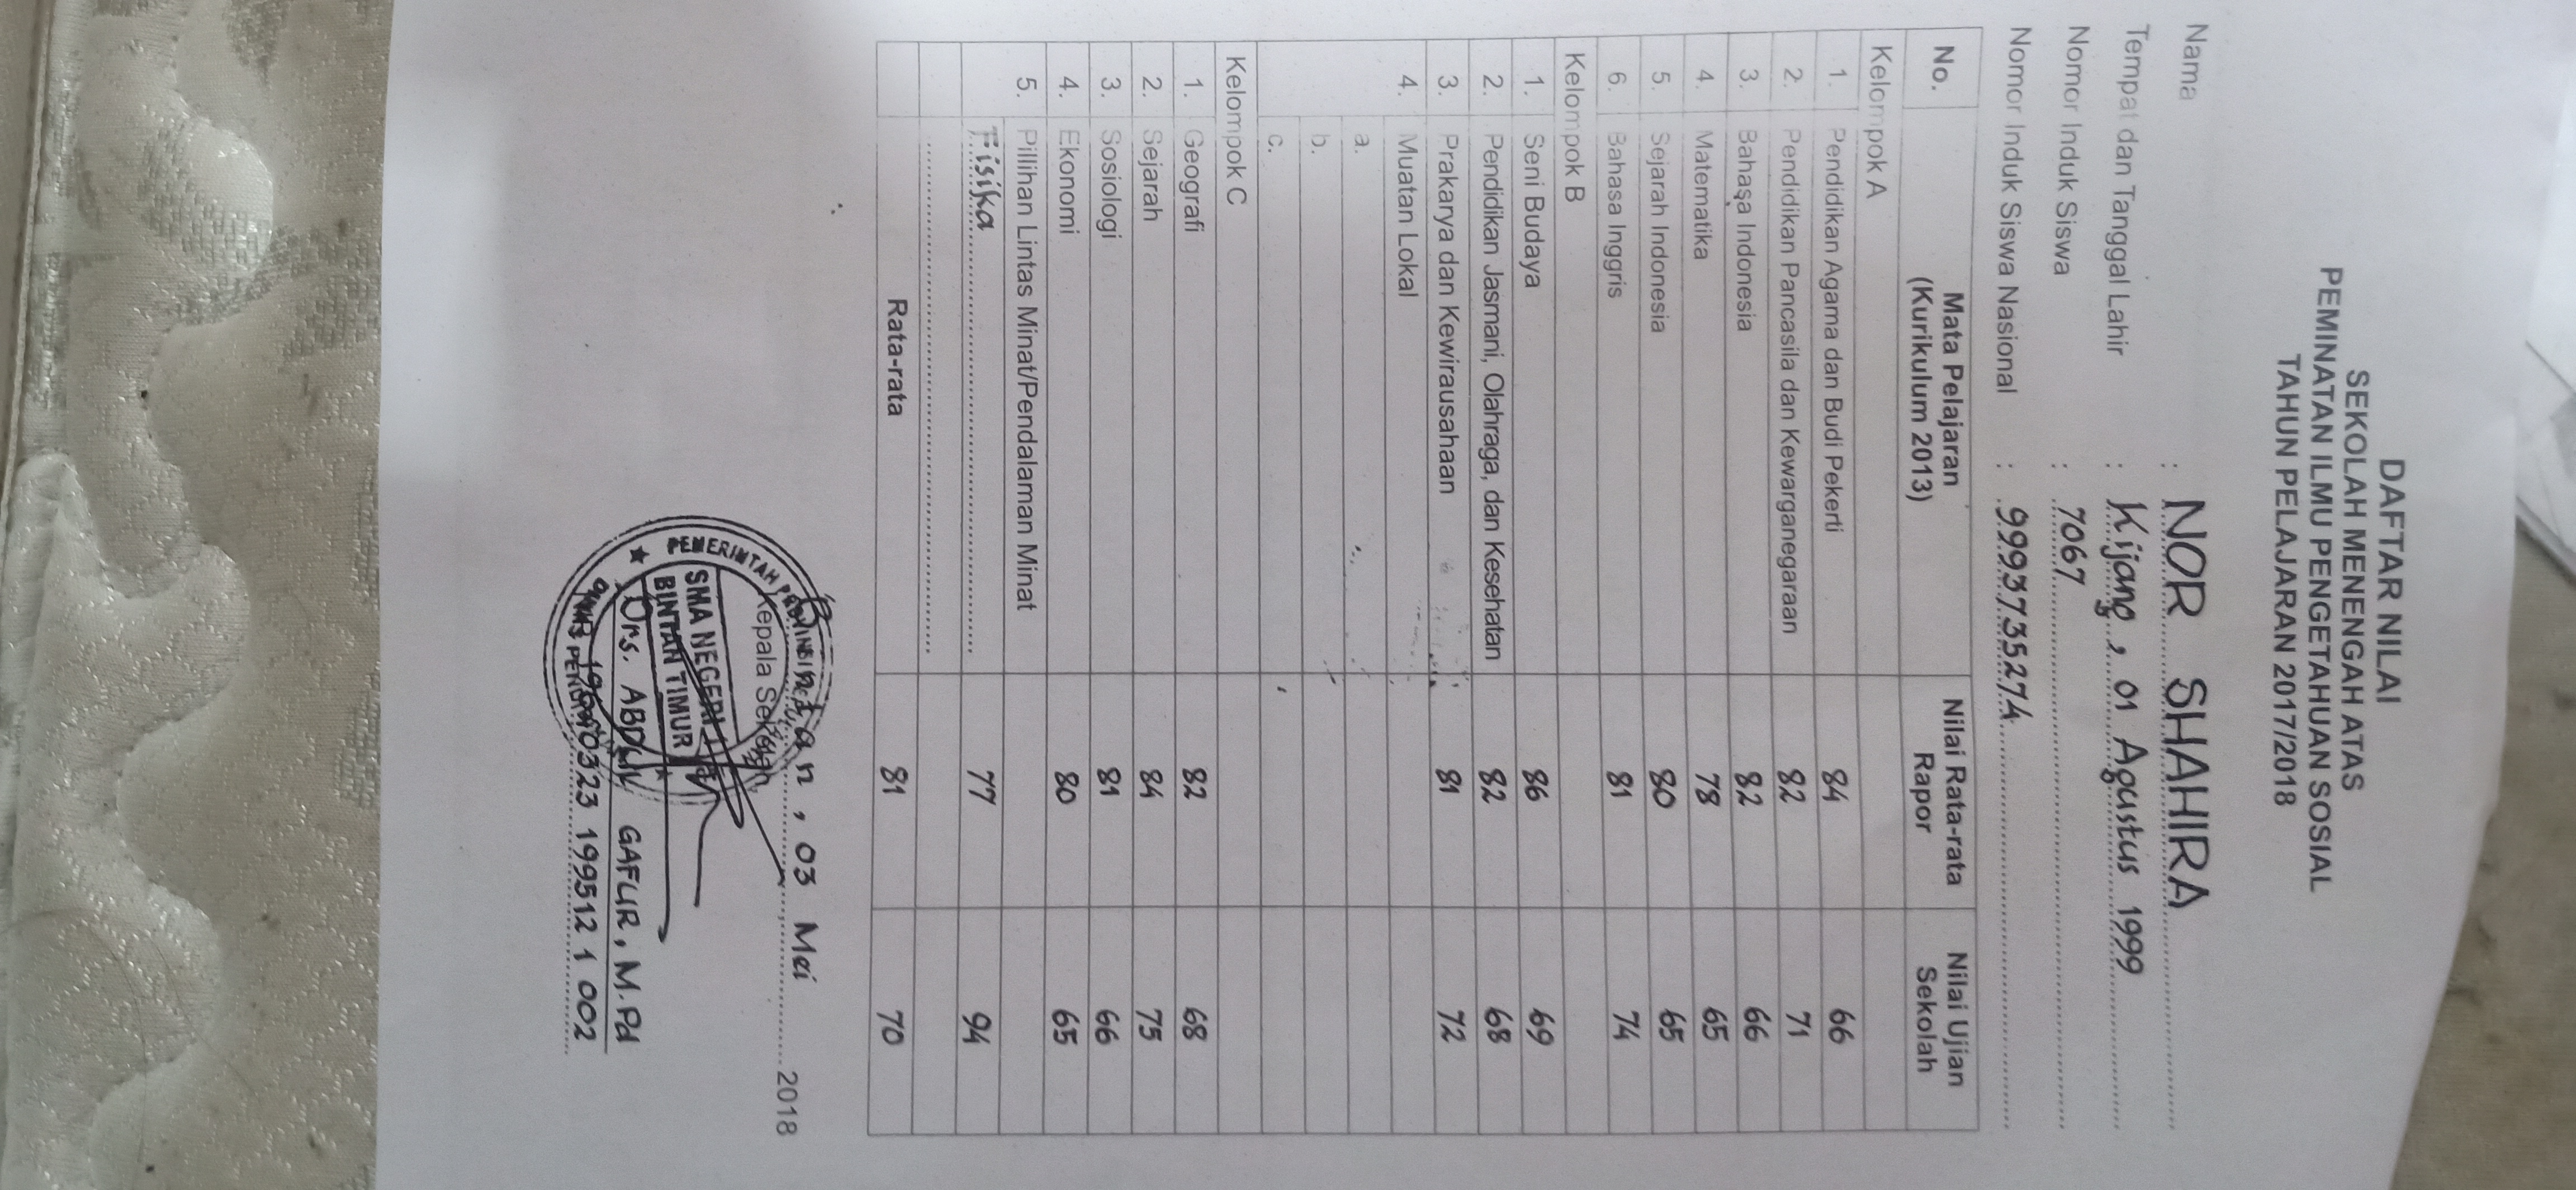 DAFTAR NILAI
SEKOLAH MENENGAH ATAS
PEMINATAN ILMU PENGETAHUAN SOSIAL
TAHUN PELAJARAN 2017/2018
Nama : NOR SHAHIRA
Tempat dan Tanggal Lahir : Kijang, 01 Agustus 1999
Nomor Induk Siswa : 7067
Nomor Induk Siswa Nasional : 9993735274
No. Mata Pelajaran (Kurikulum 2013) Nilai Rata-rata Rapor Nilai Ujian Sekolah
Kelompok A
1. Pendidikan Agama dan Budi Pekerti 84 66
2. Pendidikan Pancasila dan Kewarganegaraan 82 71
3. Bahasa Indonesia 82 66
4. Matematika 78 65
5. Sejarah Indonesia 80 65
6. Bahasa Inggris 81 74
Kelompok B
1. Seni Budaya 86 69
2. Pendidikan Jasmani, Olahraga, dan Kesehatan 82 68
3. Prakarya dan Kewirausahaan 81 72
4. Muatan Lokal
a.
b.
c.
Kelompok C
1. Geografi 82 68
2. Sejarah 84 75
3. Sosiologi 81 66
4. Ekonomi 80 65
5. Pillihan Lintas Minat/Pendalaman Minat
Fisika 77 94
Rata-rata 81 70
Bintan, 03 Mei 2018
Kepala Sekolah,
PEMERINTAH PROVINSI
SMA NEGERI 1
BINTAN TIMUR
Drs. ABDUL GAFUR, M.Pd
19680323 199512 1 002